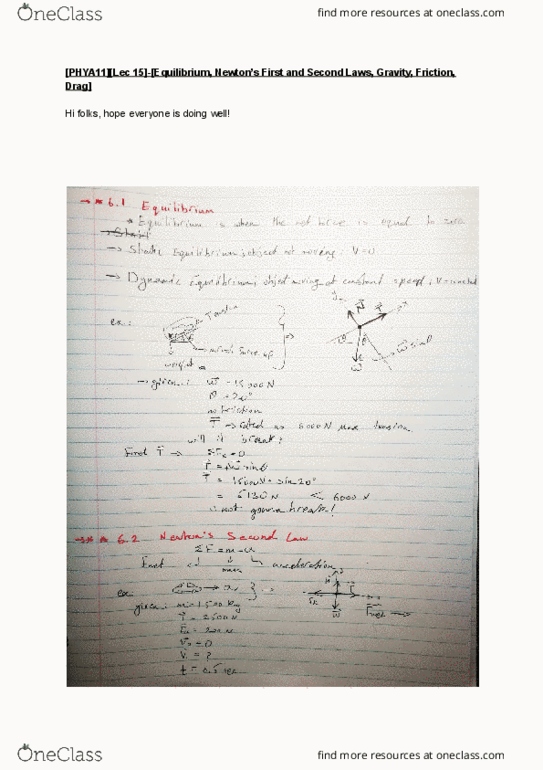 OneClass
find more resources at oneclass.com
[PHYA11][Lec 15]-[Equilibrium, Newton's First and Second Laws, Gravity, Friction,
Drag]
Hi folks, hope everyone is doing well!
6.1 Equilibrium
* Equilibrium is when the net force is equal to zero
→ Static Equilibrium: object not moving; V=0
→ Dynamic Equilibrium: object moving at constant speed; V=constant
ex:
Tension
weight
→ given: w = 15000N
θ = 20°
no friction
T → rated as 6000N max tension
will it break?
Find T →
= 5130N < 6000N
∴ not gonna break!
6.2 Newton's Second Law
ΣF = m·a
mass
acceleration
ex:
given: m = 1500kg
V = ?
OneClass
find more resources at oneclass.com